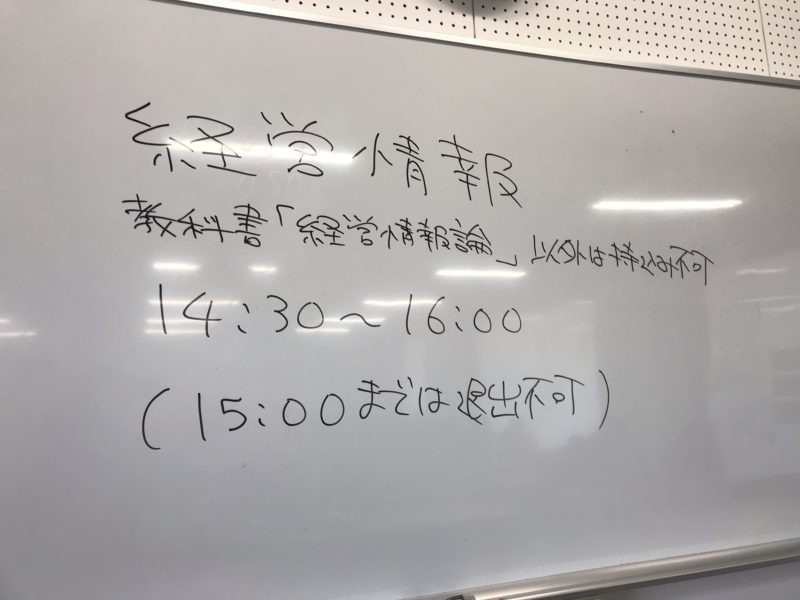 経営情報
教科書「経営情報論」以外は持込み不可
14:30～16:00
(15:00までは退出不可)